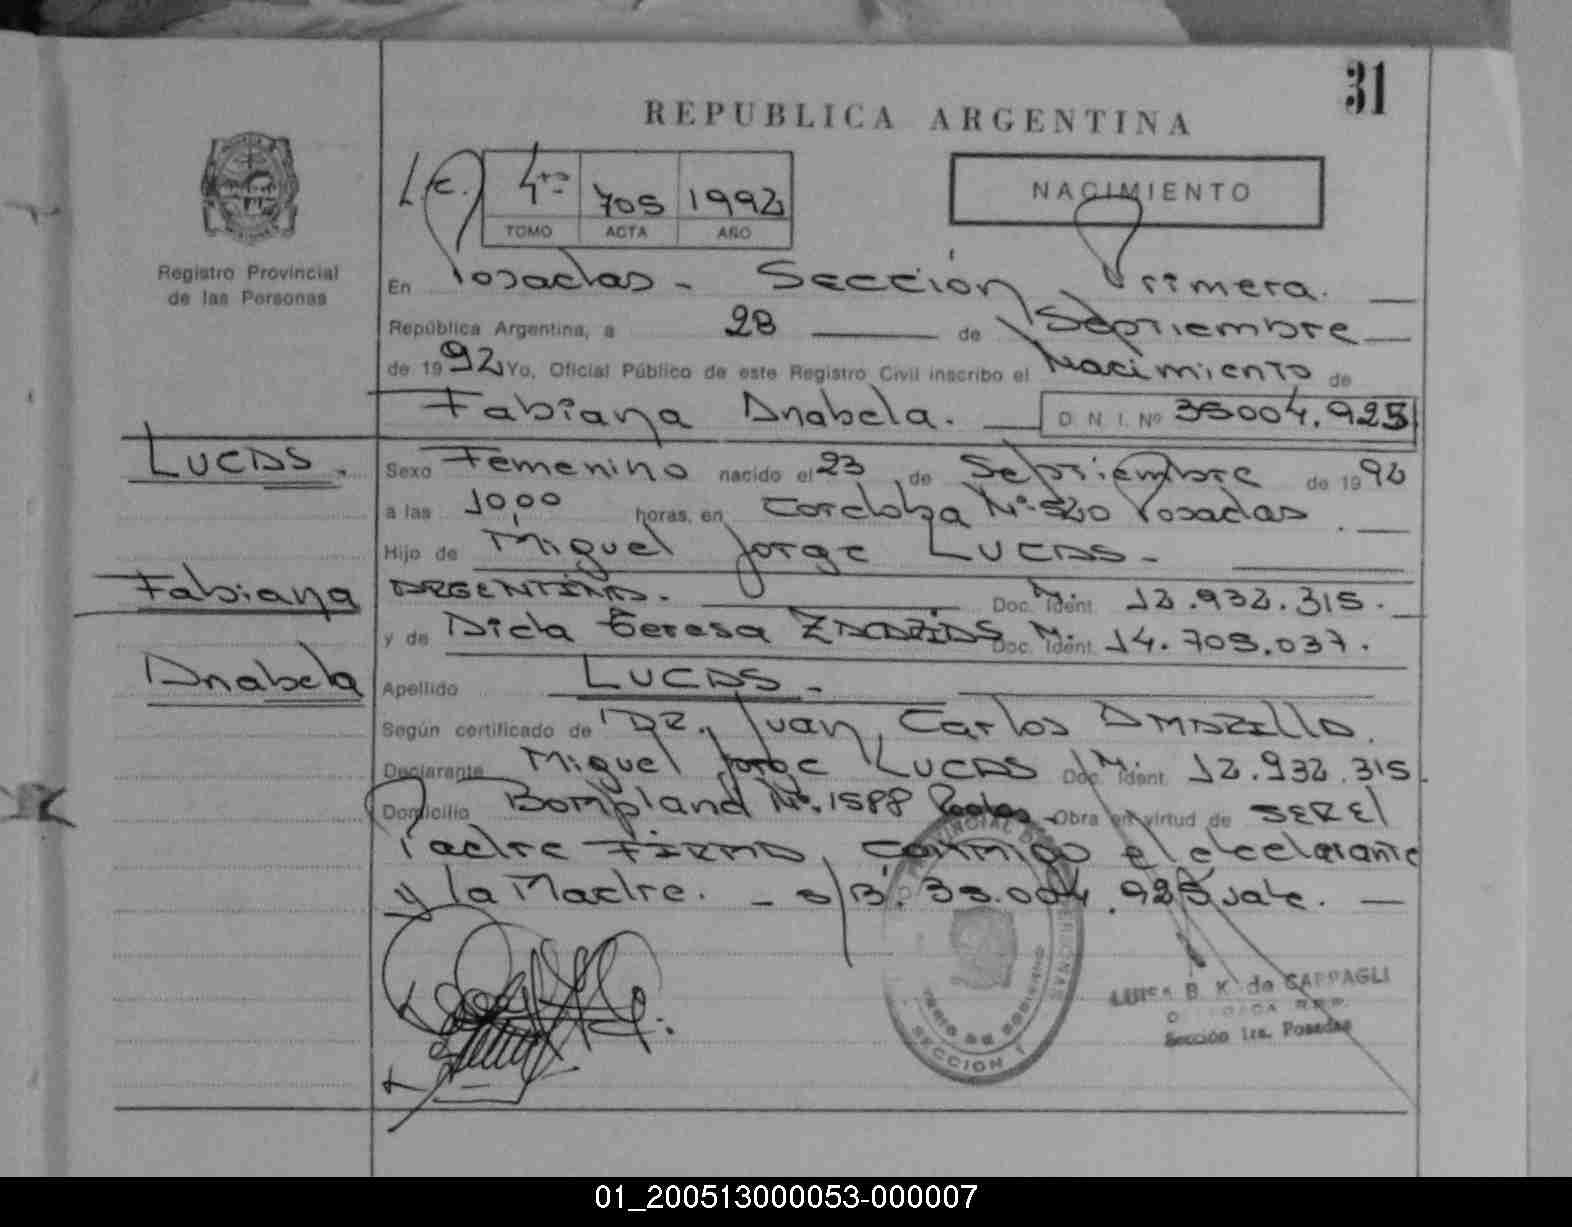 31
REPUBLICA ARGENTINA
NACIMIENTO
4to 705 1992
TOMO ACTA AÑO
Registro Provincial
de las Personas
En Posadas - Sección Primera.
República Argentina, a 28 de Septiembre
de 1992 Yo, Oficial Público de este Registro Civil inscribo el Nacimiento de
Fabiana Anabela. D. N. I. Nº
LUCAS.
Sexo Femenino nacido el 23 de Septiembre de 1992
a las 10,00 horas, en Cordoba Nº 520 Posadas.
Hijo de Miguel Jorge LUCAS -
Fabiana
ARGENTINA. Doc. Ident. M. 12.932.315.
y de Teresa Doc. Ident. M. 14.709.037.
Anabela
Apellido LUCAS -
Según certificado de DR. Juan Carlos
Declarante Miguel Jorge LUCAS Doc. Ident. M. 12.932.315.
Domicilio Bompland Nº. 1588 Posadas Obra en virtud de SER El
Padre FIRMA, conmigo el declarante
y la Madre. - s/B. vale.
PROVINCIAL
MINISTERIO DE GOBIERNO
SECCION 1
LUISA B. K. de CAPPAGLI
Sección 1ra. Posadas
01_200513000053-000007